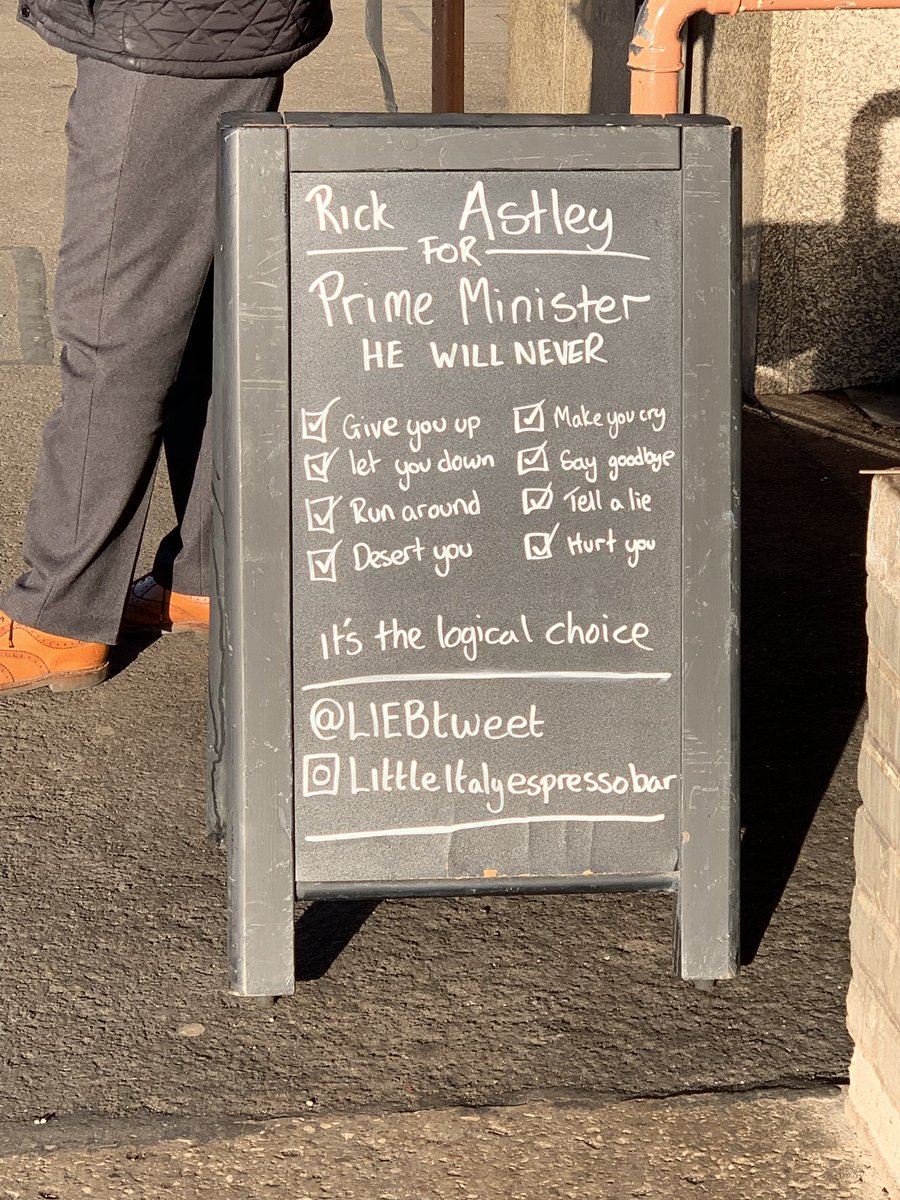 Rick Astley
FOR
Prime Minister
HE WILL NEVER
Give you up
let you down
Run around
Desert you
Make you cry
Say goodbye
Tell a lie
Hurt you
it's the logical choice
@LIEBtweet
LittleItalyespressobar